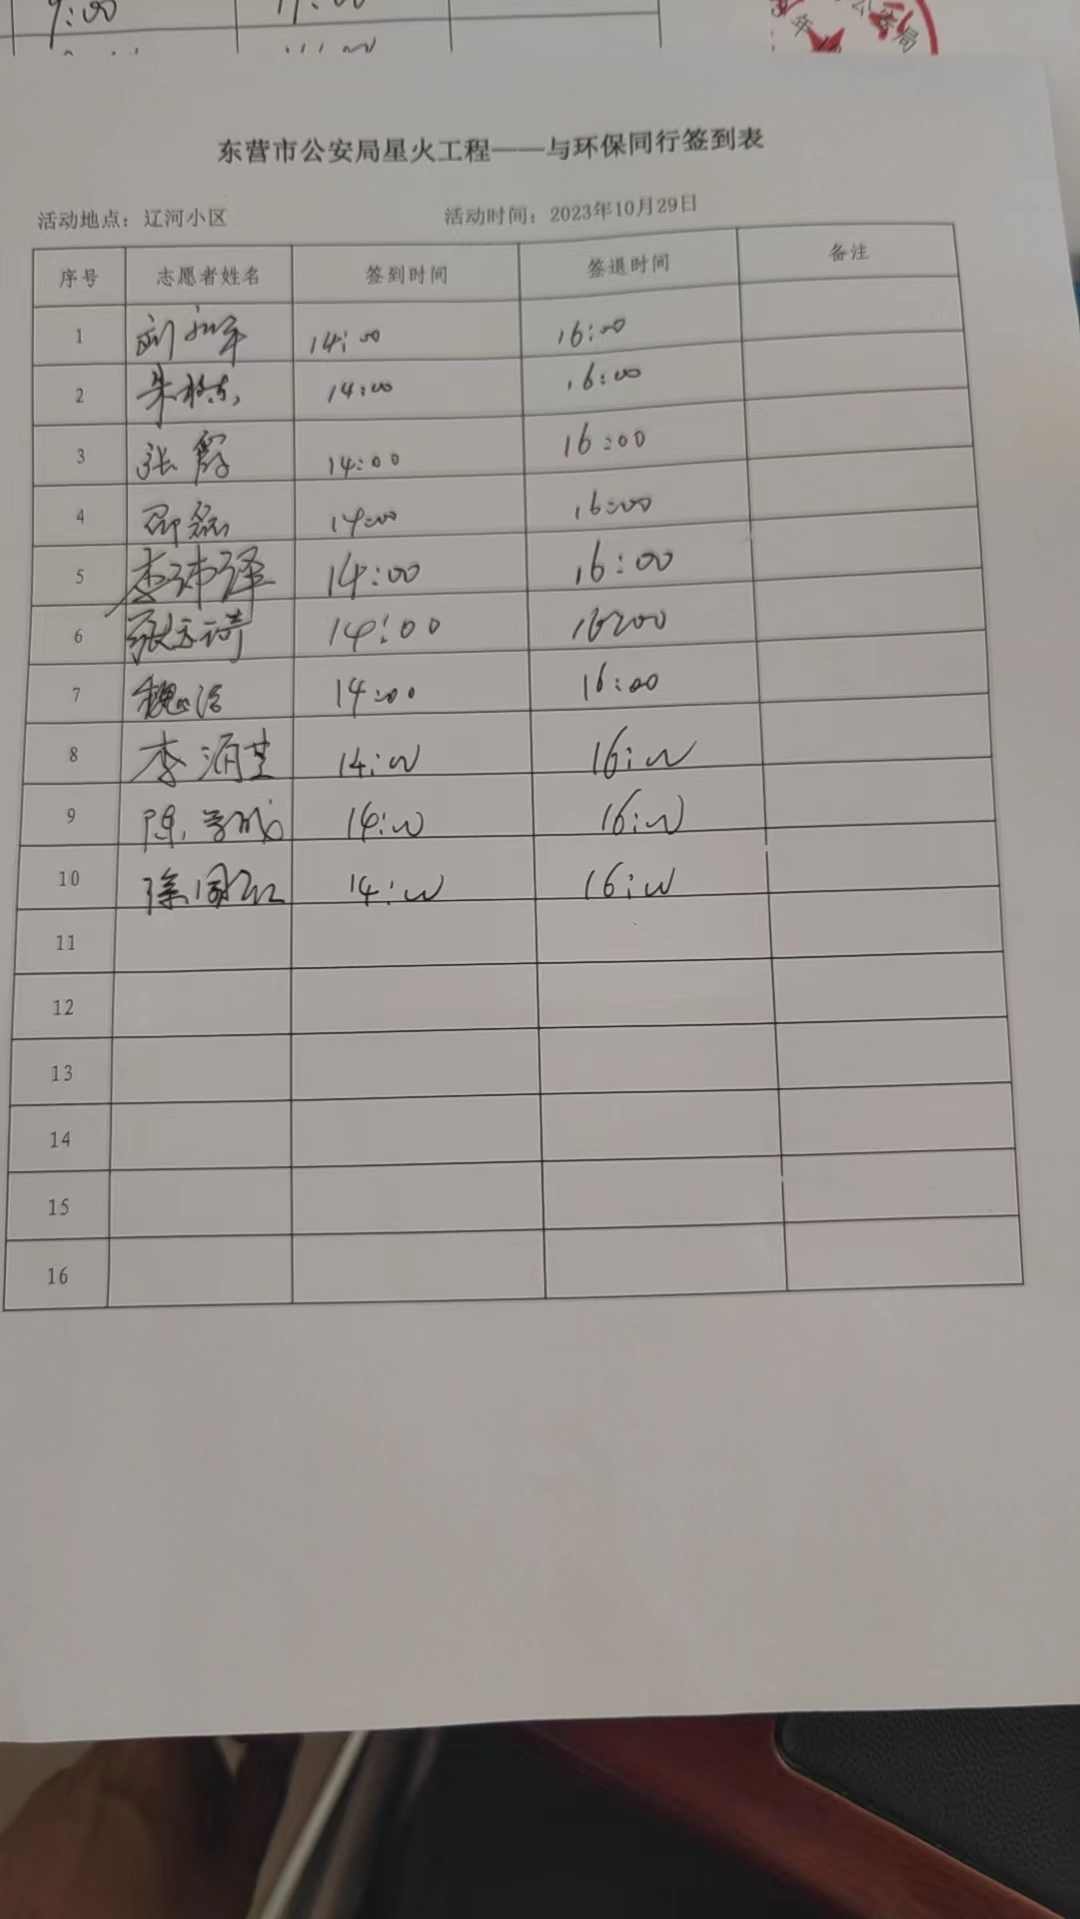 9:00 11:00
年 公安局
东营市公安局星火工程——与环保同行签到表
活动地点：辽河小区 活动时间：2023年10月29日
序号 志愿者姓名 签到时间 签退时间 备注
1 刘 14:00 16:00
2 朱 14:00 16:00
3 张霞 14:00 16:00
4 邵磊 14:00 16:00
5 李泽 14:00 16:00
6 张 14:00 16:00
7 魏 14:00 16:00
8 李 14:00 16:00
9 陈 14:00 16:00
10 徐国红 14:00 16:00
11
12
13
14
15
16